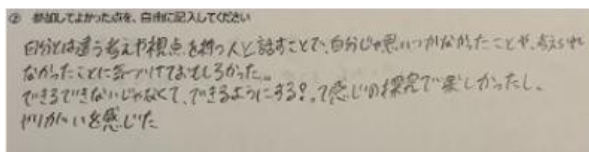 ② 参加してよかった点を、自由に記入してください
自分とは違う考えや視点を持つ人と話すことで、自分じゃ思いつかなかったことや、考えられ
なかったことに気づけておもしろかった。
できるできないじゃなくて、できるようにする!って感じの探究で楽しかったし、
やりがいを感じた